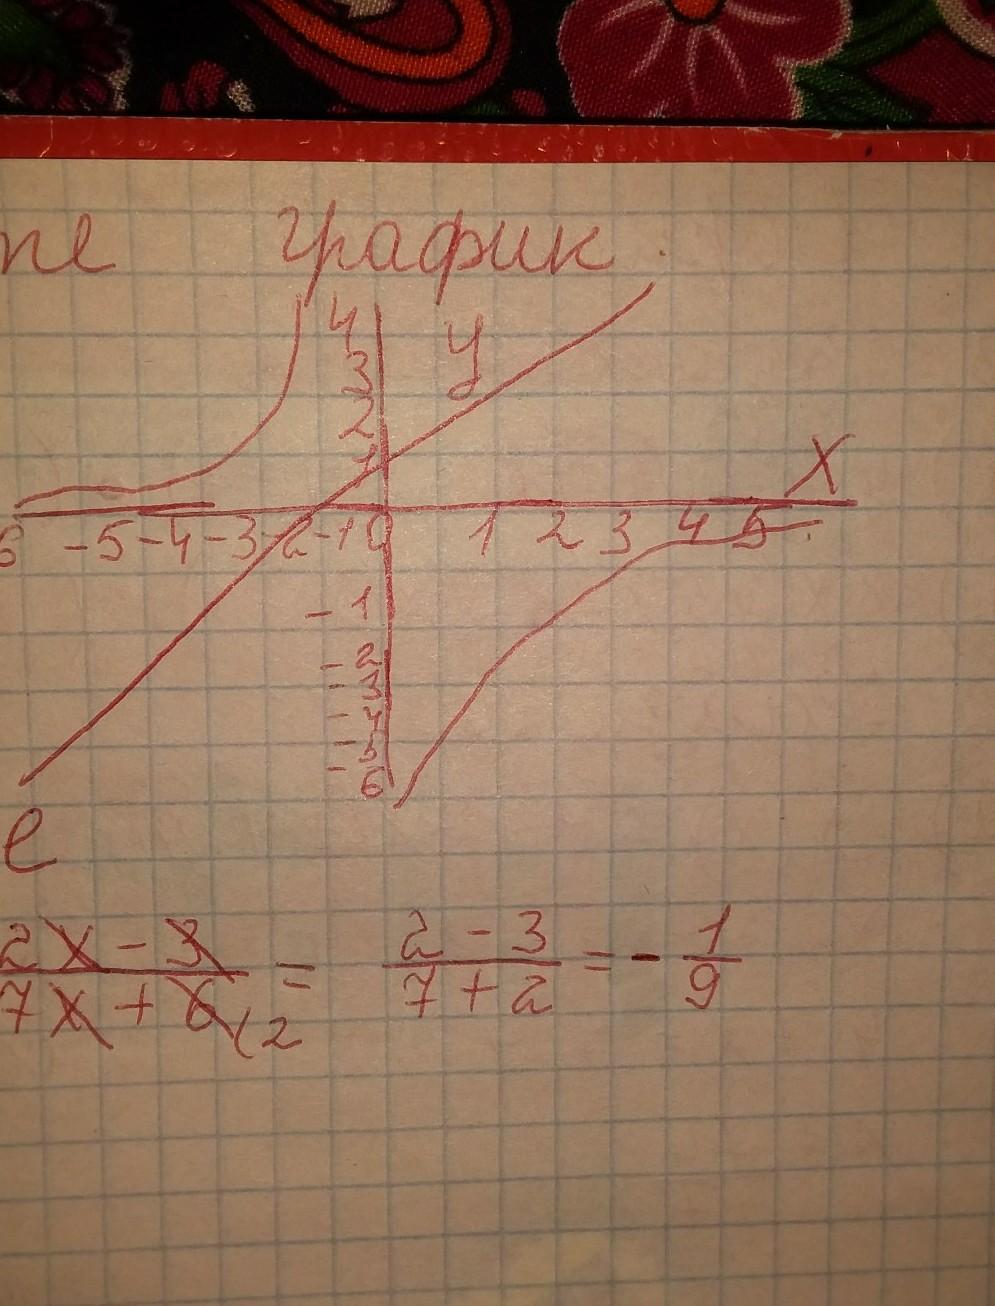 график.
4
3 y
2
1
X
-5 -4 -3 -2 -1 0 1 2 3 4 5
- 1
- 2
- 3
- 4
- 5
- 6
e
2x - 3 / 7x + 6 (2 = 2 - 3 / 7 + 2 = - 1 / 9